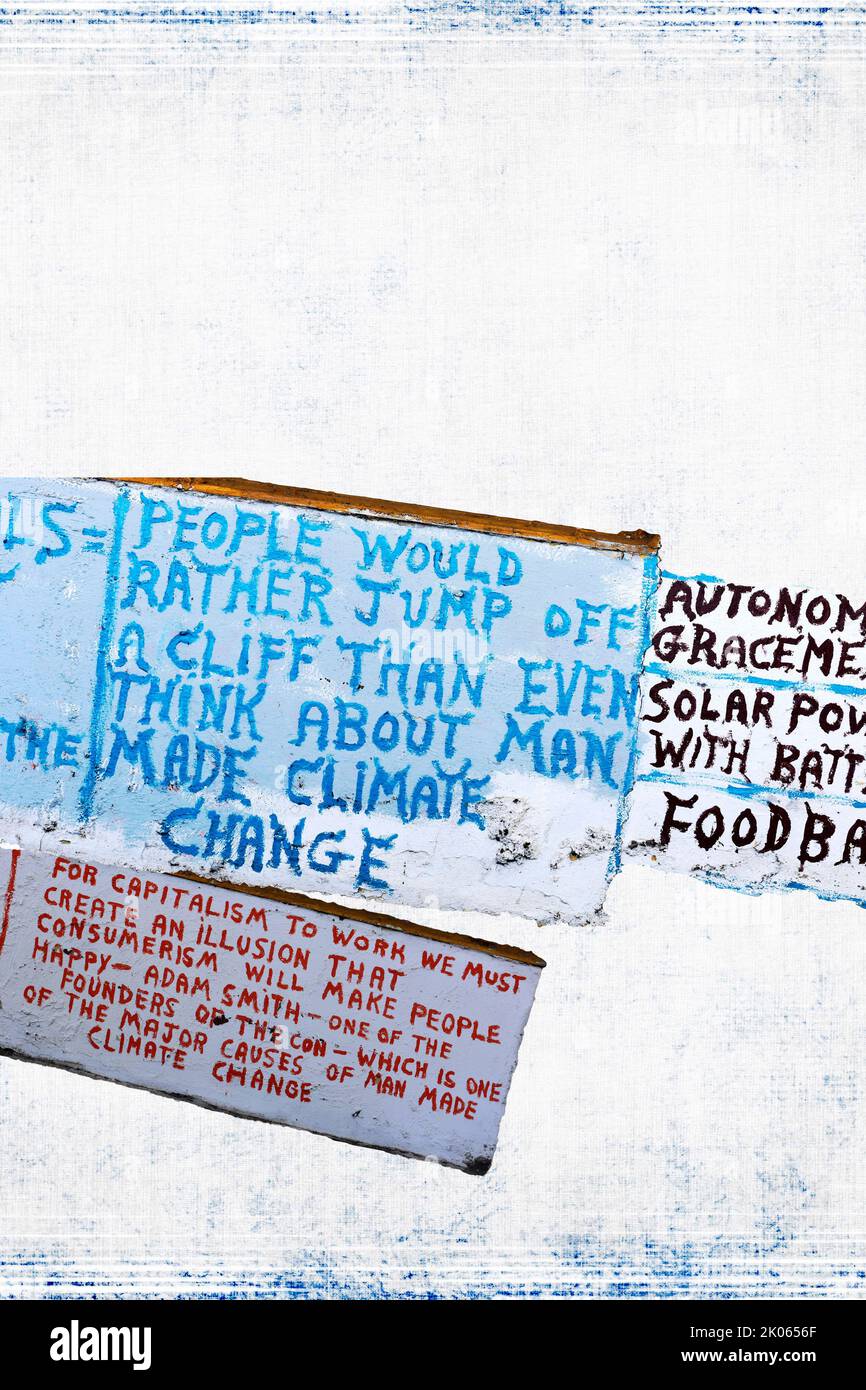 LS=
THE
PEOPLE WOULD
RATHER JUMP OFF
A CLIFF THAN EVEN
THINK ABOUT MAN
MADE CLIMATE
CHANGE
AUTONOM
GRACEME
SOLAR POW
WITH BATT
FOODBA
FOR CAPITALISM TO WORK WE MUST
CREATE AN ILLUSION THAT
CONSUMERISM WILL MAKE PEOPLE
HAPPY— ADAM SMITH— ONE OF THE
FOUNDERS OF THE CON— WHICH IS ONE
OF THE MAJOR CAUSES OF MAN MADE
CLIMATE CHANGE
alamy
Image ID: 2K0656F
www.alamy.com